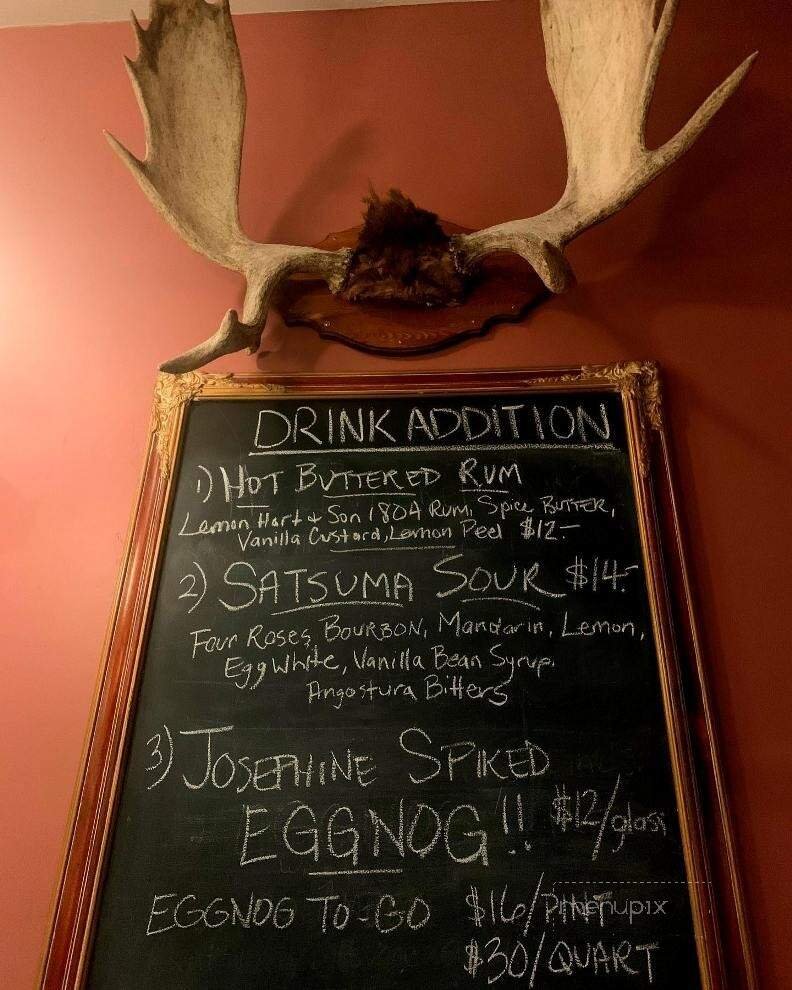 DRINK ADDITION
1) HOT BUTTERED RUM
Lemon Hart & Son 1804 RUM, Spice BUTTER,
Vanilla Custard, Lemon Peel $12.-
2) SATSUMA SOUR $14.-
Four Roses BOURBON, Mandarin, Lemon,
Egg White, Vanilla Bean Syrup,
Angostura Bitters
3) JOSEPHINE SPIKED
EGGNOG!! $12/glass
EGGNOG TO-GO $16/PINT
menupix
$30/QUART